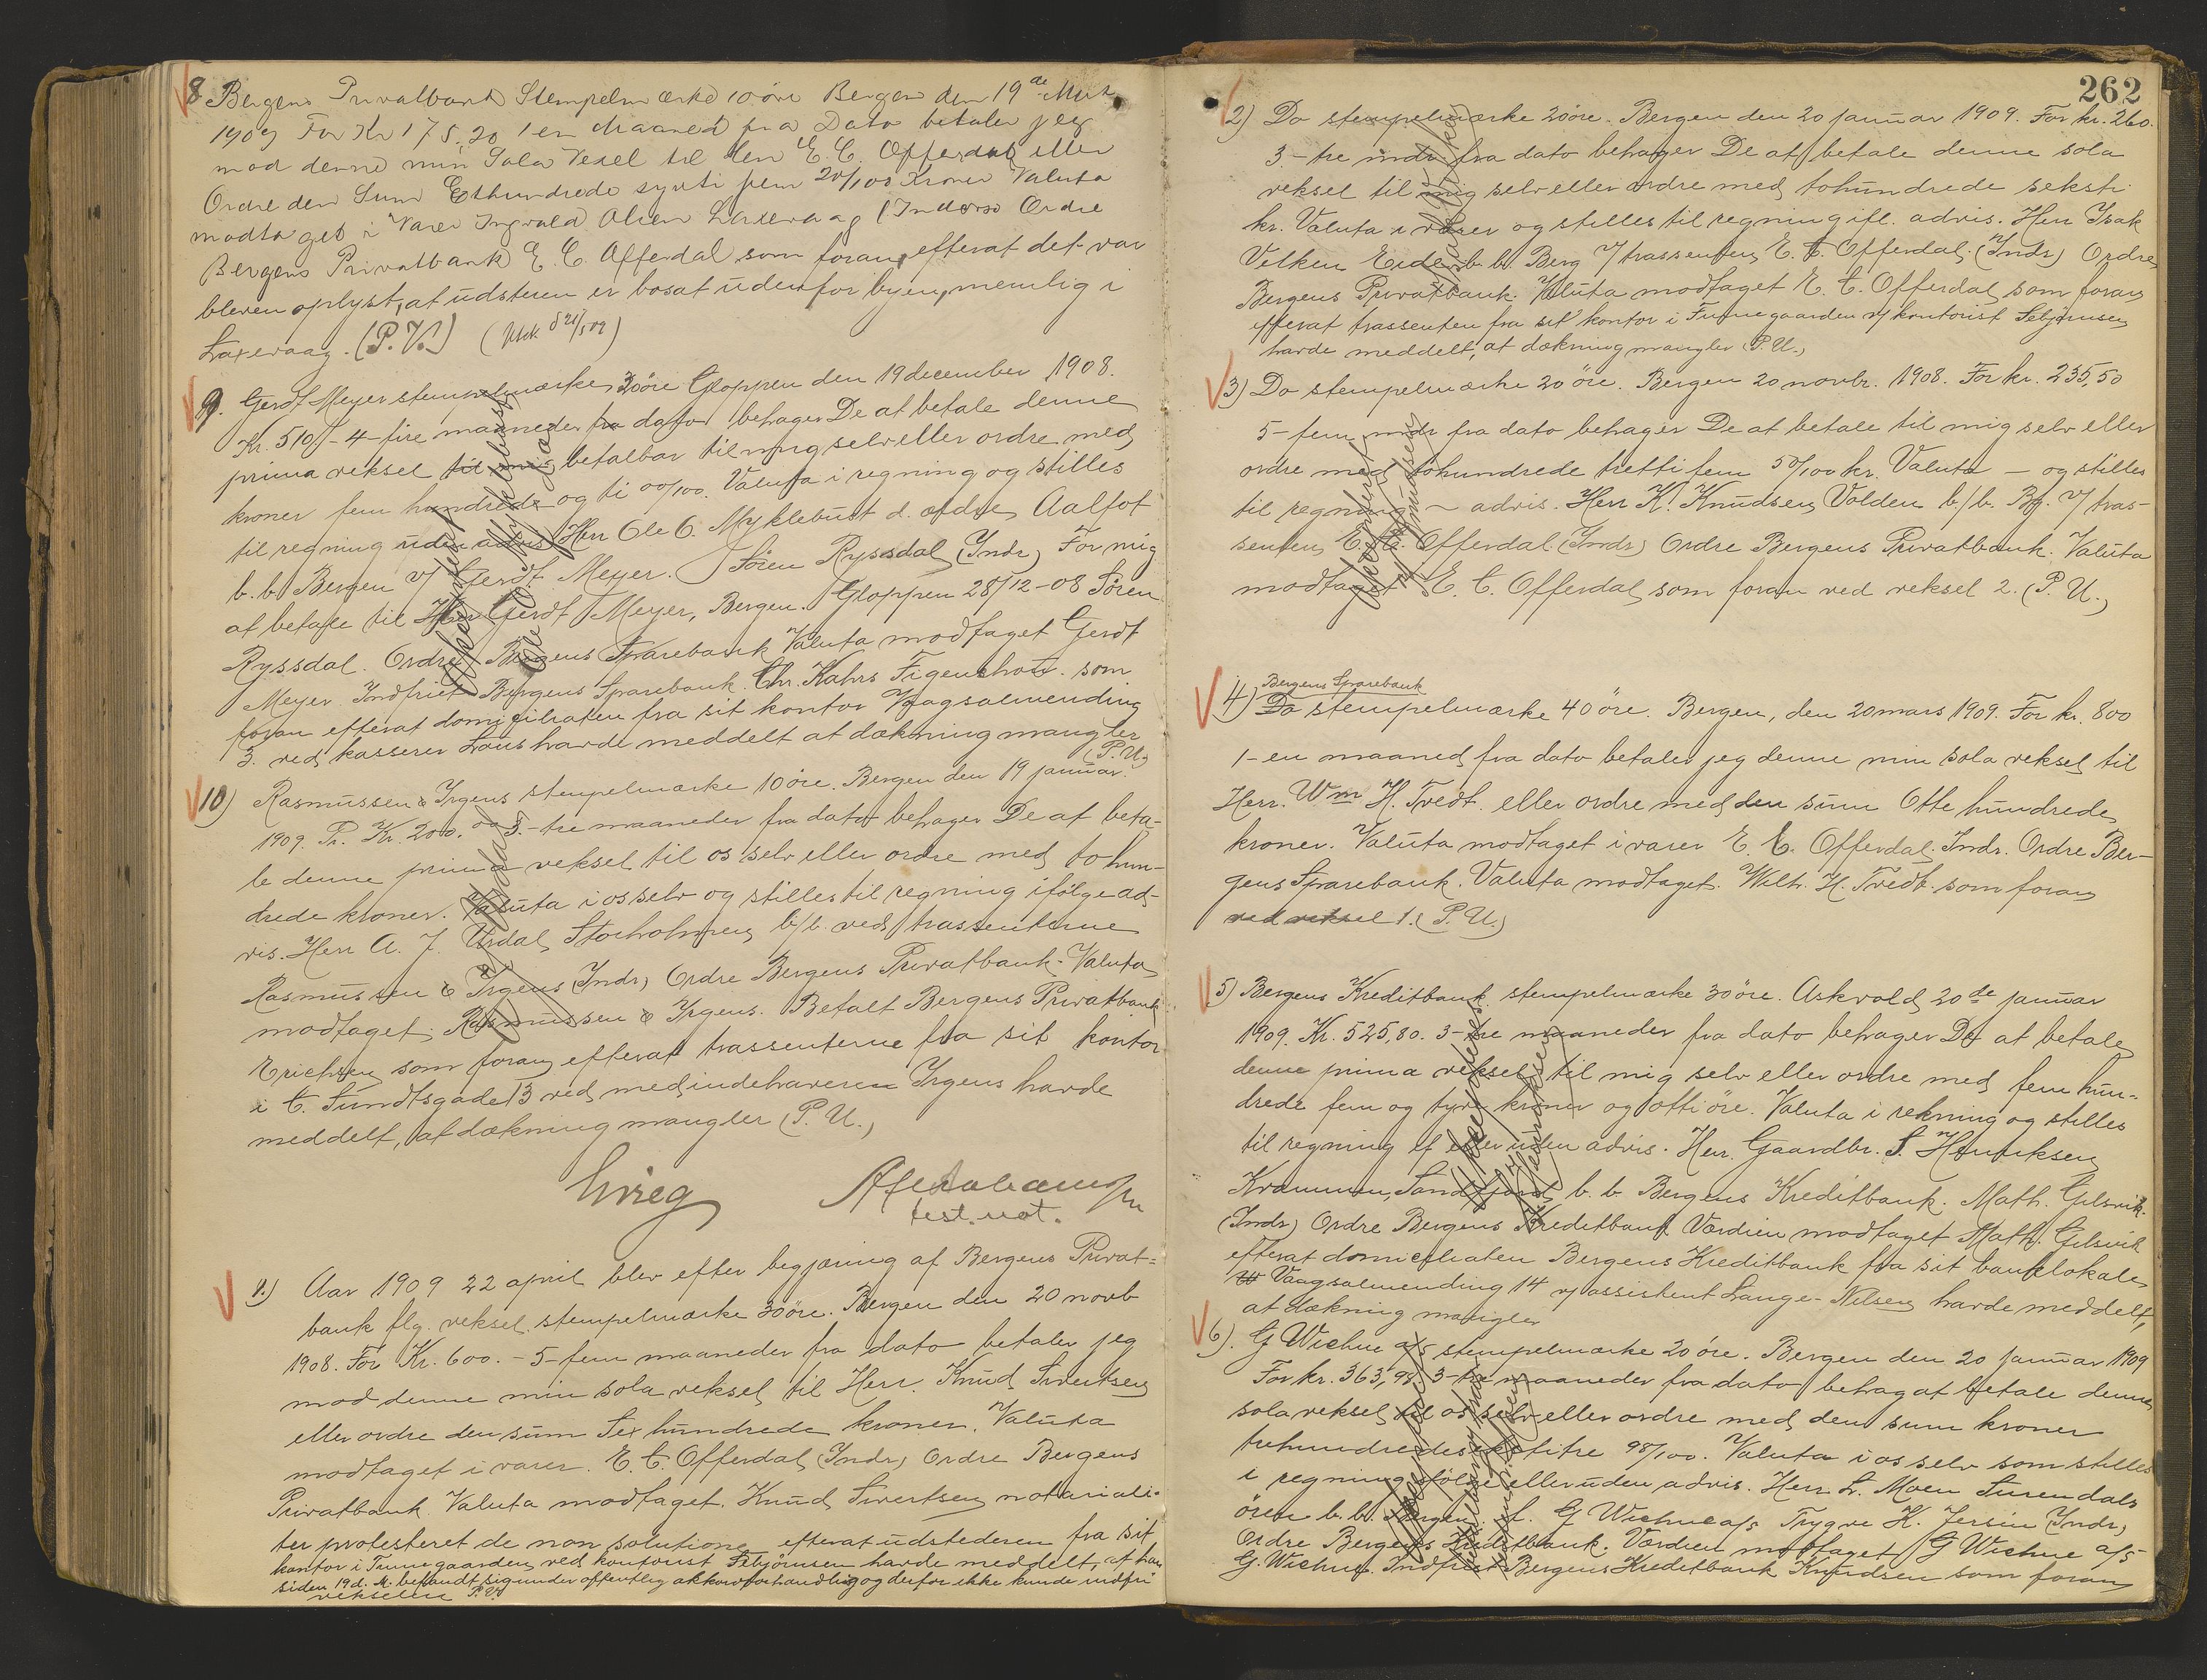 8 Bergens Privatbank Stempelmærke 10 øre Bergen den 19de Mars
1909 For Kr 175,20 1 en Maaned fra Dato betaler jeg
mod denne min Sola Vexel til Herr E. C. Offerdal eller
Ordre den Sum Ethundrede sytti fem 20/100 Kroner Valuta
modtaget i Varer Ingvald Olsen Laxevaag (Indorso Ordre
Bergens Privatbank E. C. Offerdal som foran, efterat det var
bleven oplyst, at udstederen er bosat udenfor byen, nemlig i
Laxevaag. (P. U.)
9. Gerdt Meyer stempelmærke 30 øre Gloppen den 19 december 1908.
Kr. 510,- 4- fire maaneder fra dato behager De at betale denne
prima veksel til mig betalbar til mig selv eller ordre med
kroner fem hundrede og ti 00/100. Valuta i regning og stilles
til regning uden advis Herr Ole O. Myklebust d. ældre Aalfot
b. b. Bergen v/ Gerdt Meyer. Søren Ryssdal (Indr) For mig
at betale til Herr Gerdt Meyer, Bergen. Gloppen 28/12-08 Søren
Ryssdal. Ordre Bergens Sparebank Valuta modtaget Gerdt
Meyer Indfriet Bergens Sparebank. Chr. Kahrs Figenschou. som
foran efterat domiciliaten fra sit kontor Vaagsalmending
3. ved kasserer Lous havde meddelt at dækning mangler
(P. U.)
10) Rasmussen & Irgens stempelmærke 10 øre. Bergen den 19 januar
1909. Pr. Kr. 200.00 3.- tre maaneder fra dato behager De at beta-
le denne prima veksel til os selv eller ordre med to hun-
drede kroner. Valuta i os selv og stilles til regning ifølge ad-
vis. Herr A. J. Urdal, Storholmen b/b. ved trassenterne
Rasmussen & Irgens (Indr) Ordre Bergens Privatbank. Valuta
modtaget. Rasmussen & Irgens. Betalt Bergens Privatbank
Erichsen som foran efterat trassenterne fra sit kontor
i C. Sundtsgade 13 ved medindehaveren Irgens havde
meddelt, at dækning mangler (P. U.)
Grieg
test. not.
1.) Aar 1909 22 april blev efter begjæring af Bergens Privat-
bank flg. veksel. stempelmærke 30 øre. Bergen den 20 novb
1908. For Kr. 600.- 5- fem maaneder fra dato betaler jeg
mod denne min sola veksel til Herr. Knud Sivertsen
eller ordre den sum Sex hundrede kroner. Valuta
modtaget i varer. E. C. Offerdal (Indr) Ordre Bergens
Privatbank Valuta modtaget. Knud Sivertsen notariali-
ter protesteret de non solutione efterat udstederen fra sit
kontor i Finnegaarden ved kontorist havde meddelt, at han
siden 19 d. M. befandt sig under offentlig akkordforhandling og derfor ikke kunde indfri
vekselen P. U.
262
2) Do stempelmærke 20 øre. Bergen den 20 januar 1909. For kr. 260.
3- tre mdr fra dato behager De at betale denne sola
veksel til mig selv eller ordre med tohundrede seksti
kr. Valuta i varer og stilles til regning ifl. advis. Herr Isak
Velken Eide b. b. Berg v/ trassenten E. C. Offerdal. (Indr) Ordre
Bergens Privatbank. Valuta modtaget E. C. Offerdal som foran
efterat trassenten fra sit kontor i Finnegaarden v/ kontorist
havde meddelt, at dækning mangler (P. U.)
3) Do stempelmærke 20 øre. Bergen 20 novbr. 1908. For kr. 235,50
5- fem mdr fra dato behager De at betale til mig selv eller
ordre med tohundrede tretti fem 50/100 kr. Valuta — og stilles
til regning ~ advis. Herr K. Knudsen Volden b/b. Bg. v/ tras-
senten E. C. Offerdal. (Indr) Ordre Bergens Privatbank. Valuta
modtaget E. C. Offerdal som foran ved veksel 2. (P. U.)
Bergens Sparebank
4) Do stempelmærke 40 øre. Bergen, den 20 mars 1909. For kr. 800
1- en maaned fra dato betaler jeg denne min sola veksel til
Herr. Wm H. Tvedt. eller ordre med den sum Otte hundrede
kroner. Valuta modtaget i varer E. C. Offerdal. Indr. Ordre Ber-
gens Sparebank. Valuta modtaget. Wilh. H. Tvedt. som foran
ved veksel 1. (P. U.)
5) Bergens Kreditbank stempelmærke 30 øre. Askvold, 20de januar
1909. Kr. 525,80. 3- tre maaneder fra dato behager De at betale
denne prima veksel til mig selv eller ordre med fem hun-
drede fem og tyve kroner og otti øre. Valuta i rekning og stilles
til regning ef eller uden advis. Herr. Gaardbr. S. Henriksen
Krammen, Sandfjord, b. b. Bergens Kreditbank. Math. Gilsvik.
(Indr) Ordre Bergens Kreditbank. Værdien modtaget Math. Gilsvik
efterat domiciliaten Bergens Kreditbank fra sit banklokale
Vaagsalmending 14 v/ assistent Lange-Nilsen havde meddelt,
at dækning mangler
6). G Wiehne a/s stempelmærke 20 øre. Bergen den 20 januar 1909
For kr. 363,98. 3- tre maaneder fra dato behag at betale denne
sola veksel til os selv eller ordre med den sum kroner
trehundredesekstitre 98/100. Valuta i os selv som stilles
i regning ifølge eller uden advis. Herr L. Moen Surendals
øren b. b. Bergen. f. G Wiehne a/s Trygve K. Jersin (Indr)
Ordre Bergens Kreditbank. Værdien modtaget G Wiehne a/s
G. Wiehne. Indfriet Bergens Kreditbank Knudsen som foran